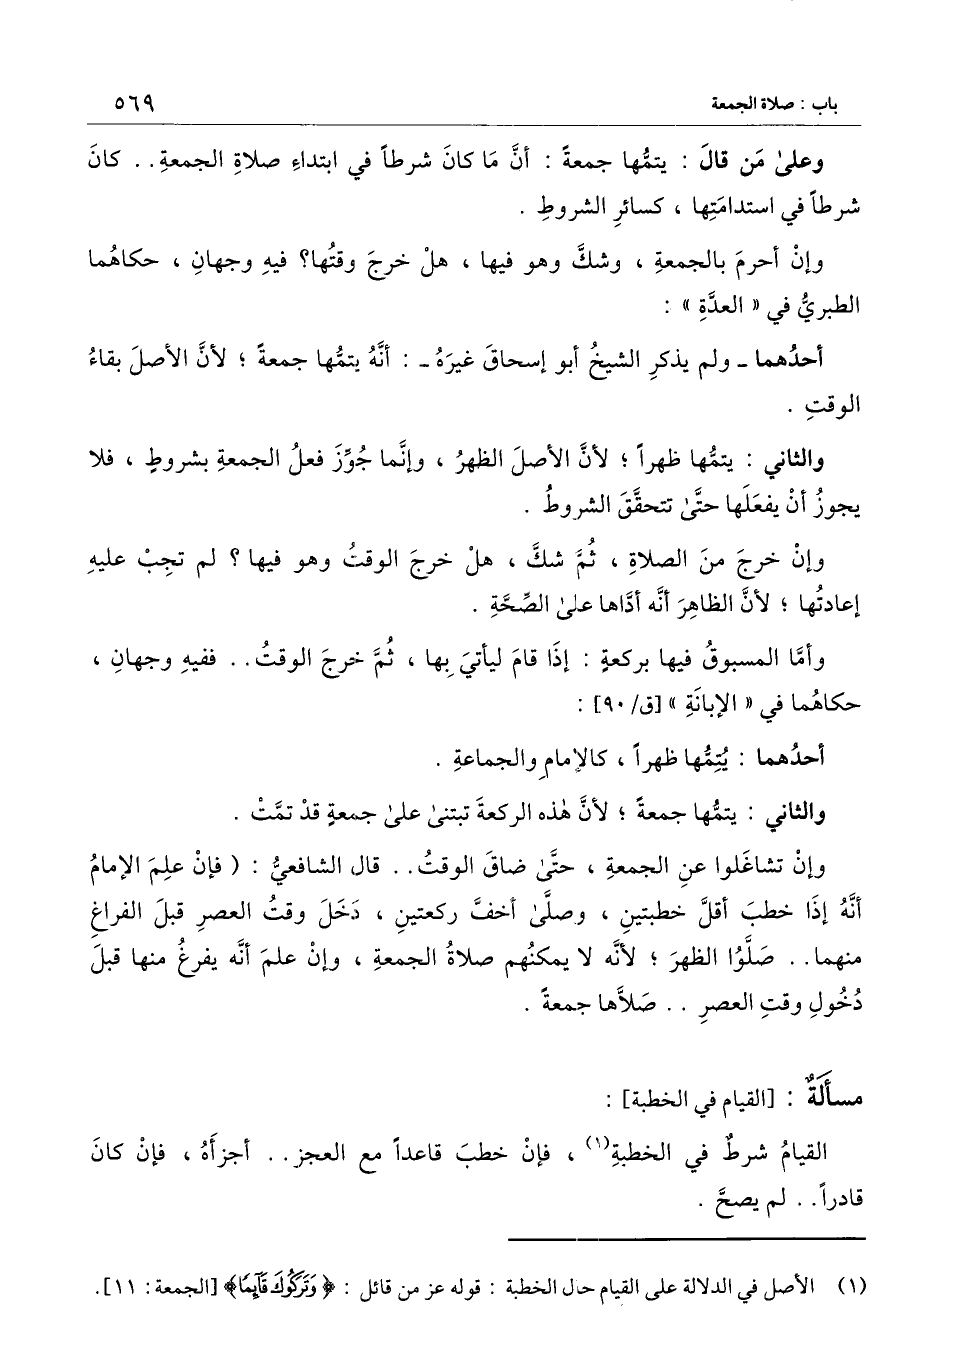 باب : صلاة الجمعة ٥٦٩
وعلىٰ مَن قالَ : يتمُّها جمعةً : أنَّ مَا كانَ شرطاً في ابتداءِ صلاةِ الجمعةِ . . كانَ
شرطاً في استدامَتِها ، كسائرِ الشروطِ .
وإنْ أحرمَ بالجمعةِ ، وشكَّ وهو فيها ، هلْ خرجَ وقتُها؟ فيهِ وجهانِ ، حكاهُما
الطبريُّ في « العدَّةِ » :
أحدُهما ـ ولم يذكرِ الشيخُ أبو إسحاقَ غيرَهُ ـ : أنَّهُ يتمُّها جمعةً ؛ لأنَّ الأصلَ بقاءُ
الوقتِ .
والثاني : يتمُّها ظهراً ؛ لأنَّ الأصلَ الظهرُ ، وإنَّما جُوِّزَ فعلُ الجمعةِ بشروطٍ ، فلا
يجوزُ أنْ يفعَلَها حتَّىٰ تتحقَّقَ الشروطُ .
وإنْ خرجَ منَ الصلاةِ ، ثُمَّ شكَّ ، هلْ خرجَ الوقتُ وهو فيها ؟ لم تجِبْ عليهِ
إعادتُها ؛ لأنَّ الظاهِرَ أنَّه أدَّاها علىٰ الصِّحَّةِ .
وأمَّا المسبوقُ فيها بركعةٍ : إذَا قامَ ليأتيَ بِها ، ثُمَّ خرجَ الوقتُ . . ففيهِ وجهانِ ،
حكاهُما في « الإبانَةِ » [ق/٩٠] :
أحدُهما : يُتِمُّها ظهراً ، كالإمامِ والجماعةِ .
والثاني : يتمُّها جمعةً ؛ لأنَّ هٰذه الركعةَ تبتنىٰ علىٰ جمعةٍ قدْ تمَّتْ .
وإنْ تشاغَلوا عنِ الجمعةِ ، حتَّىٰ ضاقَ الوقتُ . . قال الشافعيُّ : ( فإنْ علِمَ الإمامُ
أنَّهُ إذَا خطبَ أقلَّ خطبتينِ ، وصلَّىٰ أخفَّ ركعتينِ ، دَخَلَ وقتُ العصرِ قبلَ الفراغِ
منهما . . صَلَّوُا الظهرَ ؛ لأنَّه لا يمكنُهم صلاةُ الجمعةِ ، وإنْ علمَ أنَّه يفرغُ منها قبلَ
دُخُولِ وقتِ العصرِ . . صَلاَّها جمعةً .
مسأَلةٌ : [القيام في الخطبة] :
القيامُ شرطٌ في الخطبةِ(١) ، فإنْ خطبَ قاعداً مع العجز . . أجزأَهُ ، فإنْ كانَ
قادراً . . لم يصحَّ .
(١) الأصل في الدلالة على القيام حال الخطبة : قوله عز من قائل : ﴿ وَتَرَكُوكَ قَآئِمًا﴾ [الجمعة : ١١].